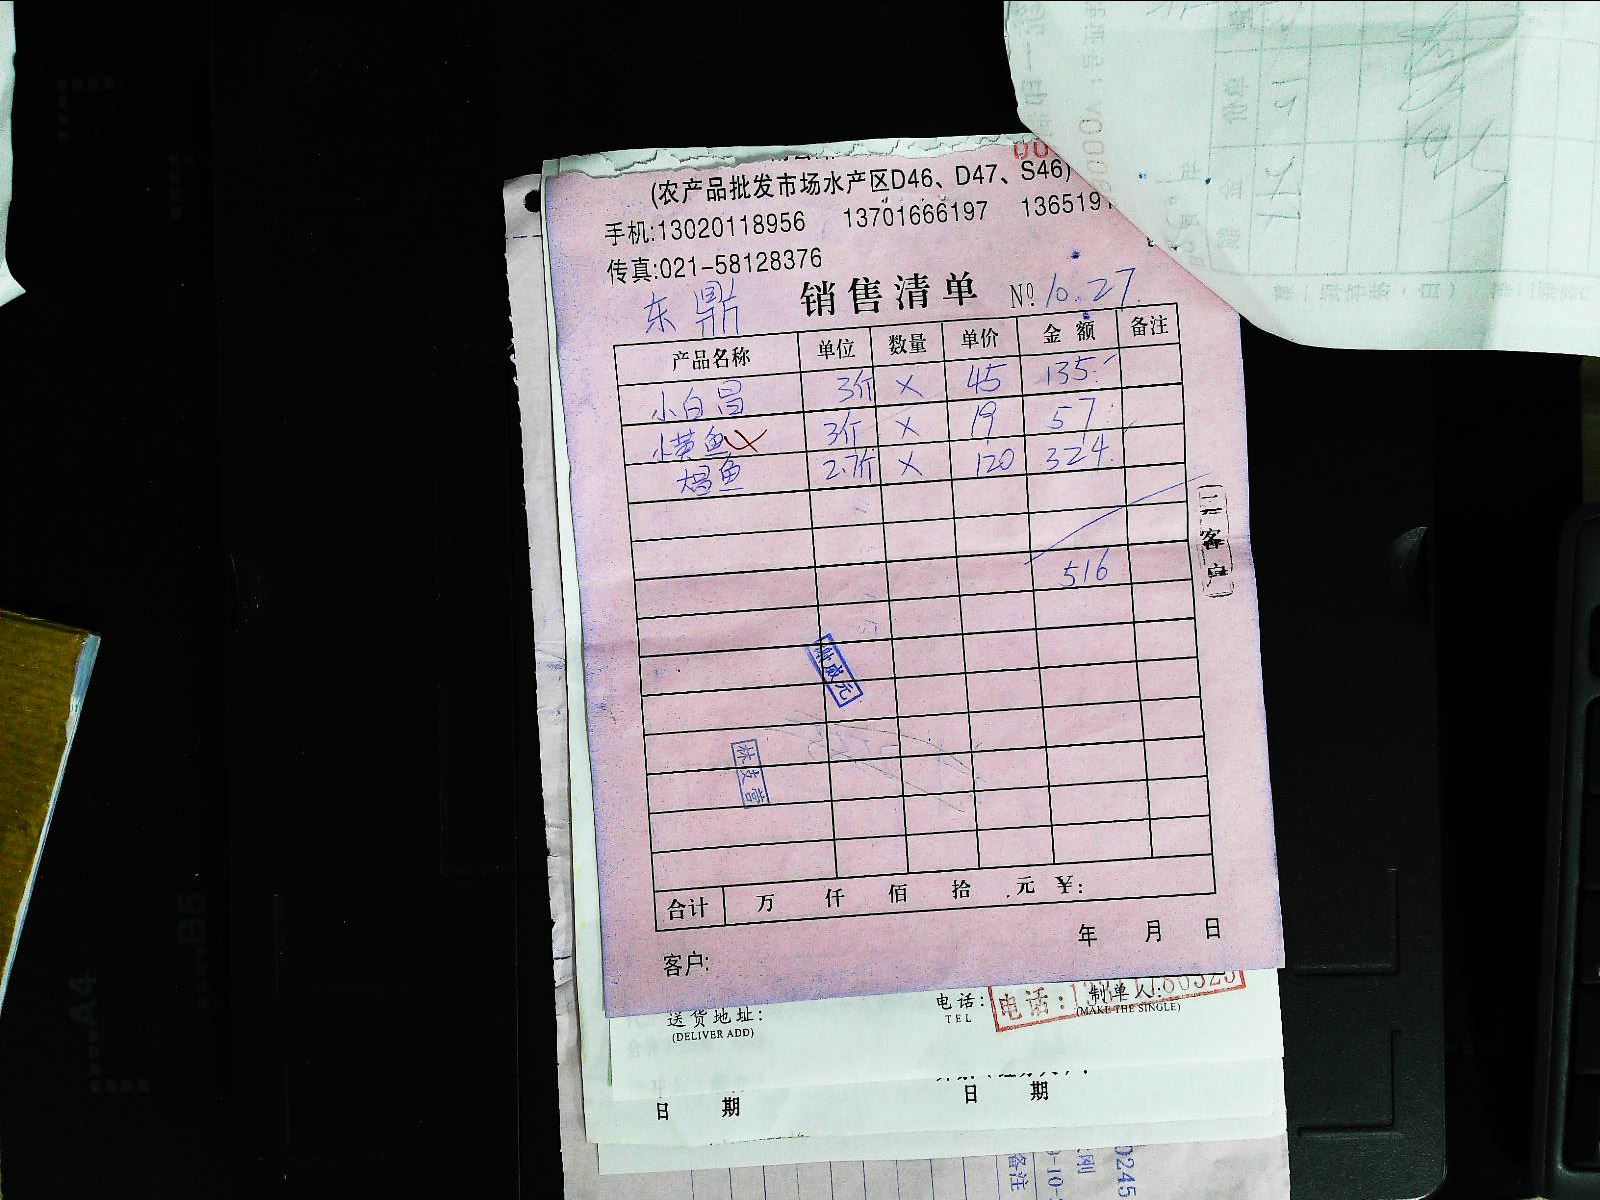 (农产品批发市场水产区D46、D47、S46)
手机:13020118956 13701666197 136519
传真:021-58128376
东鼎 销售清单 Nº 10.27.
产品名称 单位 数量 单价 金额 备注
小白昌 3斤 × 45 135.
小黄鱼 × 3斤 × 19 57.
鱼 2.7斤 × 120 324.
516
二客户
林支营
合计 万 仟 佰 拾 元 ¥:
年 月 日
客户:
送货地址: 电话: 制单人:
(DELIVER ADD) TEL (MAKE THE SINGLE)
电话:
日 期 日 期
备注
0245